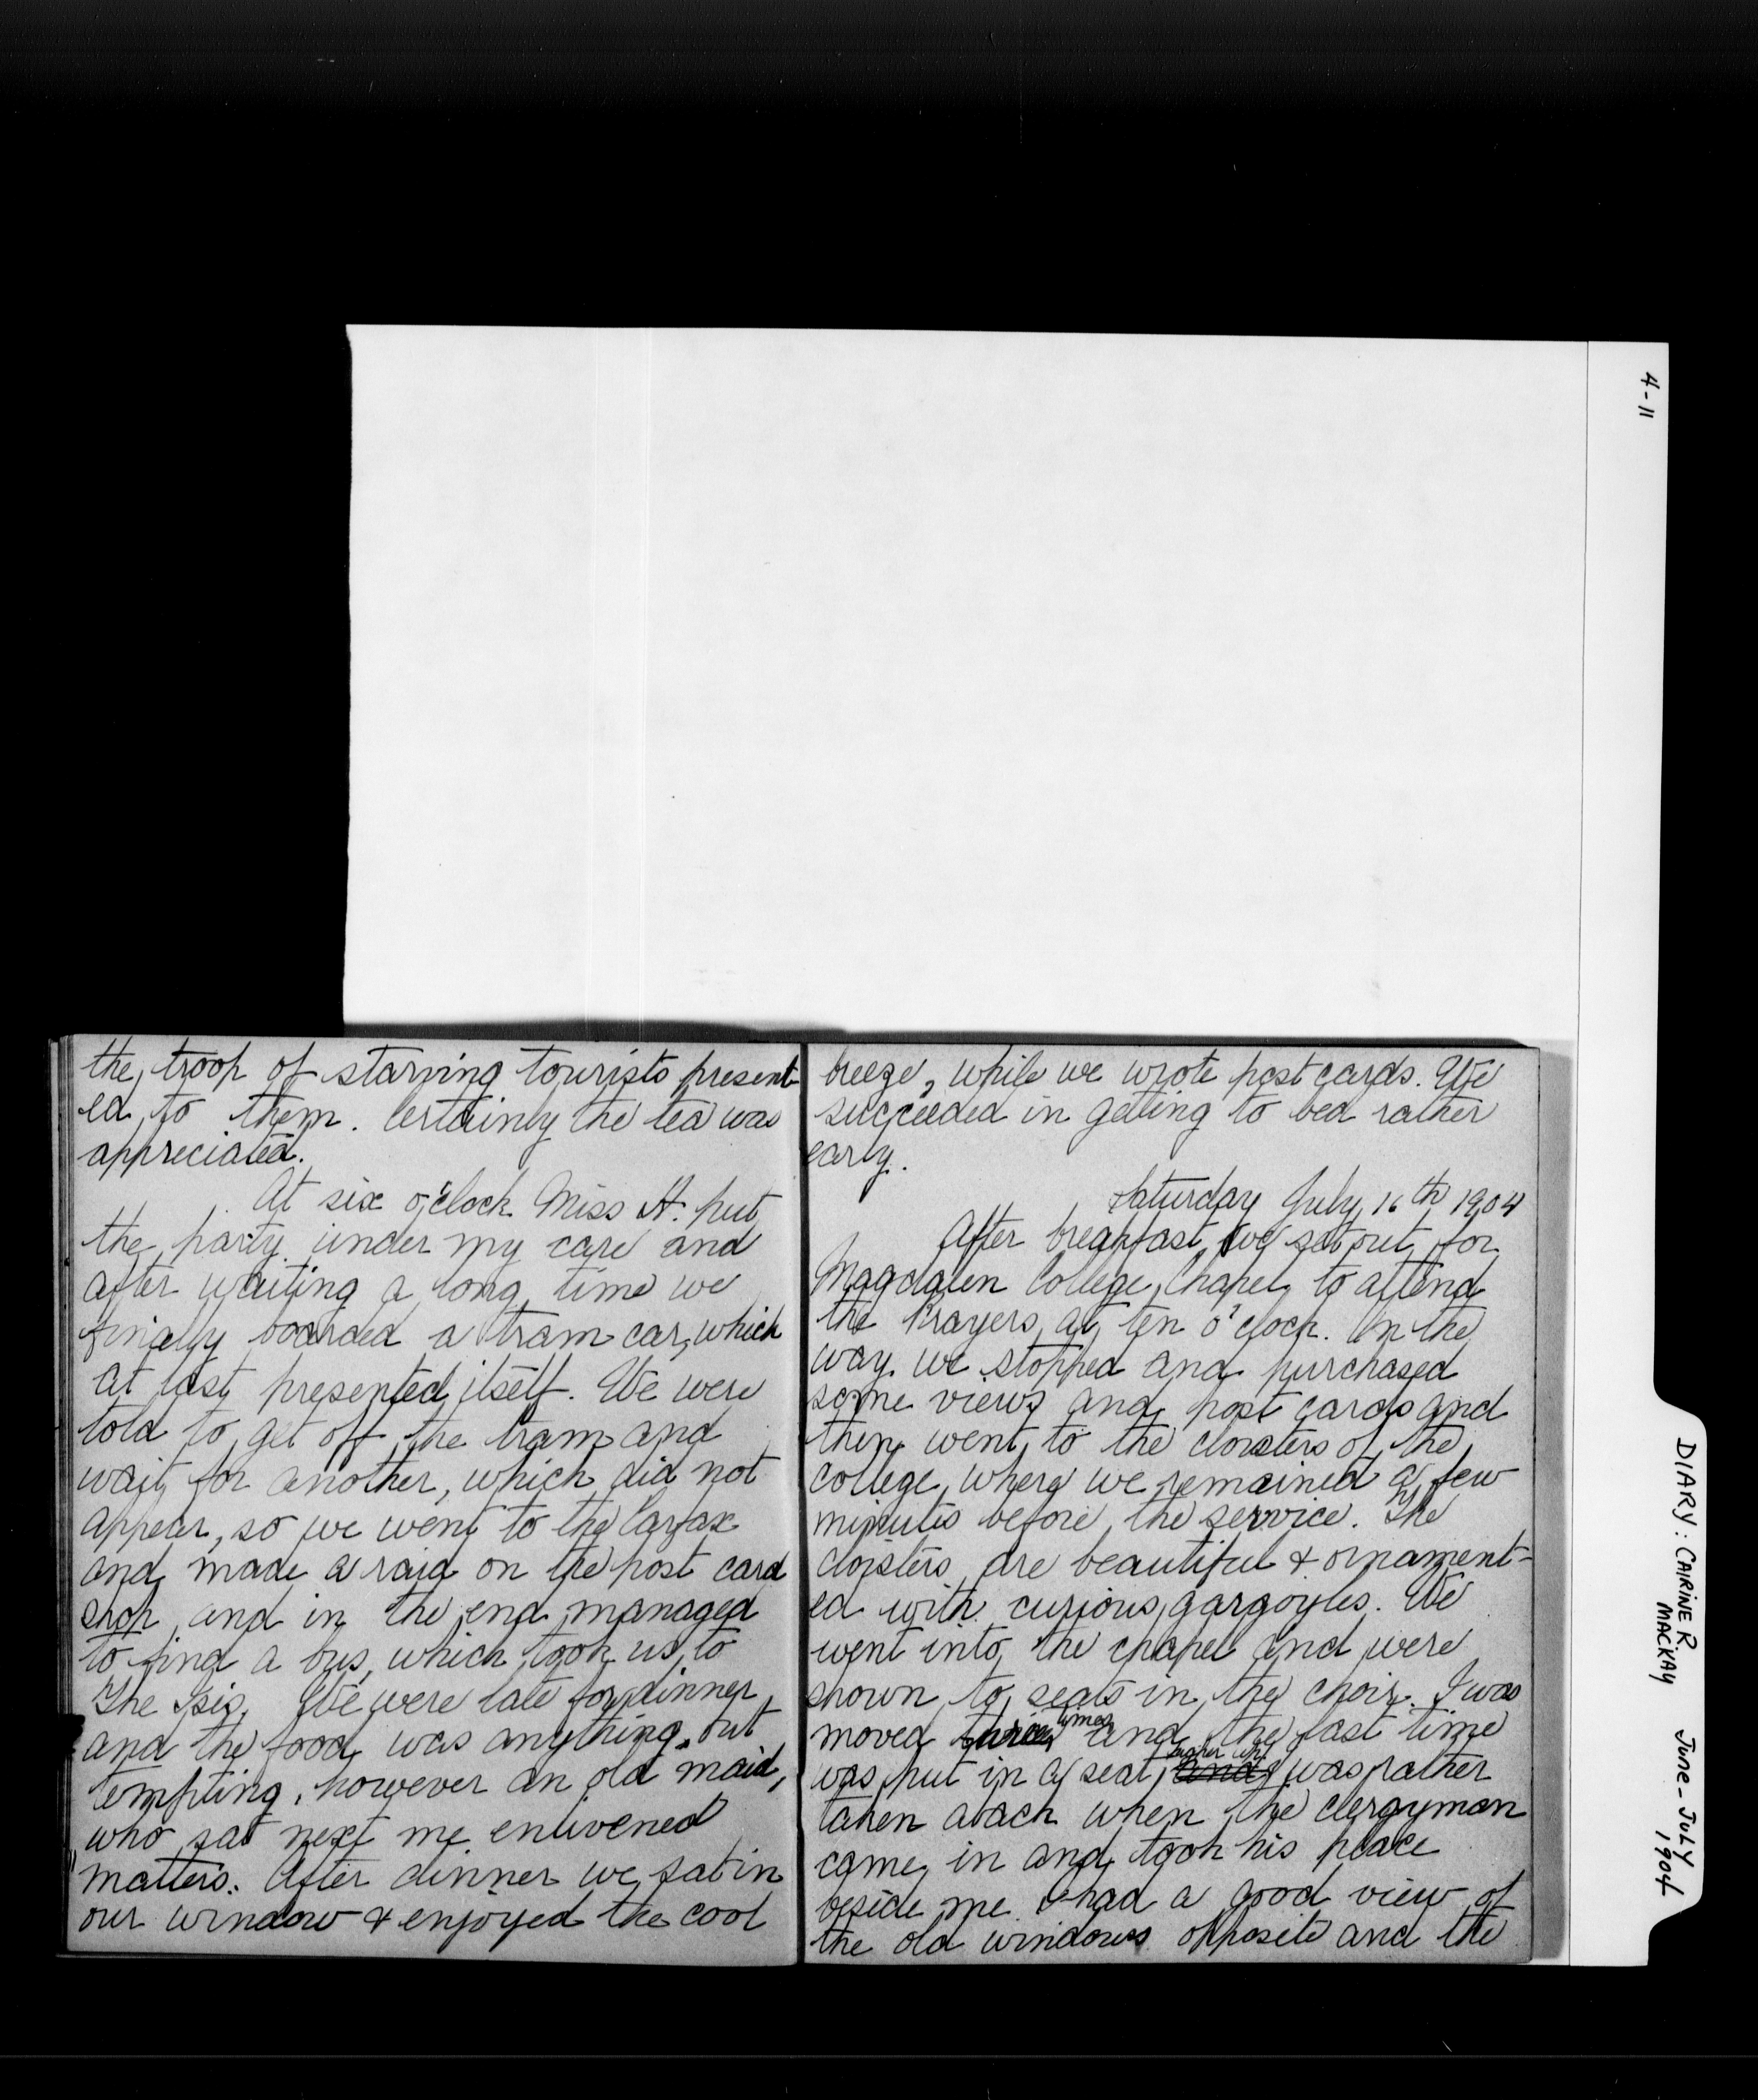 the troop of starving tourists present-
ed to them. Certainly the tea was
appreciated.
At six o'clock Miss H. put
the party under my care and
after waiting a long time we
finally boarded a tram car, which
at last presented itself. We were
told to get off the tram and
wait for another, which did not
appear, so we went to the Carfax
and made a raid on the post card
shop, and in the end managed
to find a bus, which took us to
the Isis. We were late for dinner
and the food was anything but
tempting, however an old maid,
who sat next me enlivened
matters. After dinner we sat in
our window & enjoyed the cool
breeze, while we wrote post cards. We
succeeded in getting to bed rather
early.
Saturday July 16th 1904
After breakfast we set out for
Magdalen College Chapel to attend
the Prayers at ten o'clock. On the
way we stopped and purchased
some views and post cards and
then went to the cloisters of the
college, where we remained a few
minutes before the service. The
cloisters are beautiful & ornament-
ed with curious gargoyles. We
went into the chapel and were
shown to seats in the choir. I was
moved times and the last time
was put in a seat higher up and was rather
taken aback when the clergyman
came in and took his place
beside me. I had a good view of
the old windows opposite and the
4-11
DIARY: CAIRINE R. MACKAY
June - July 1904